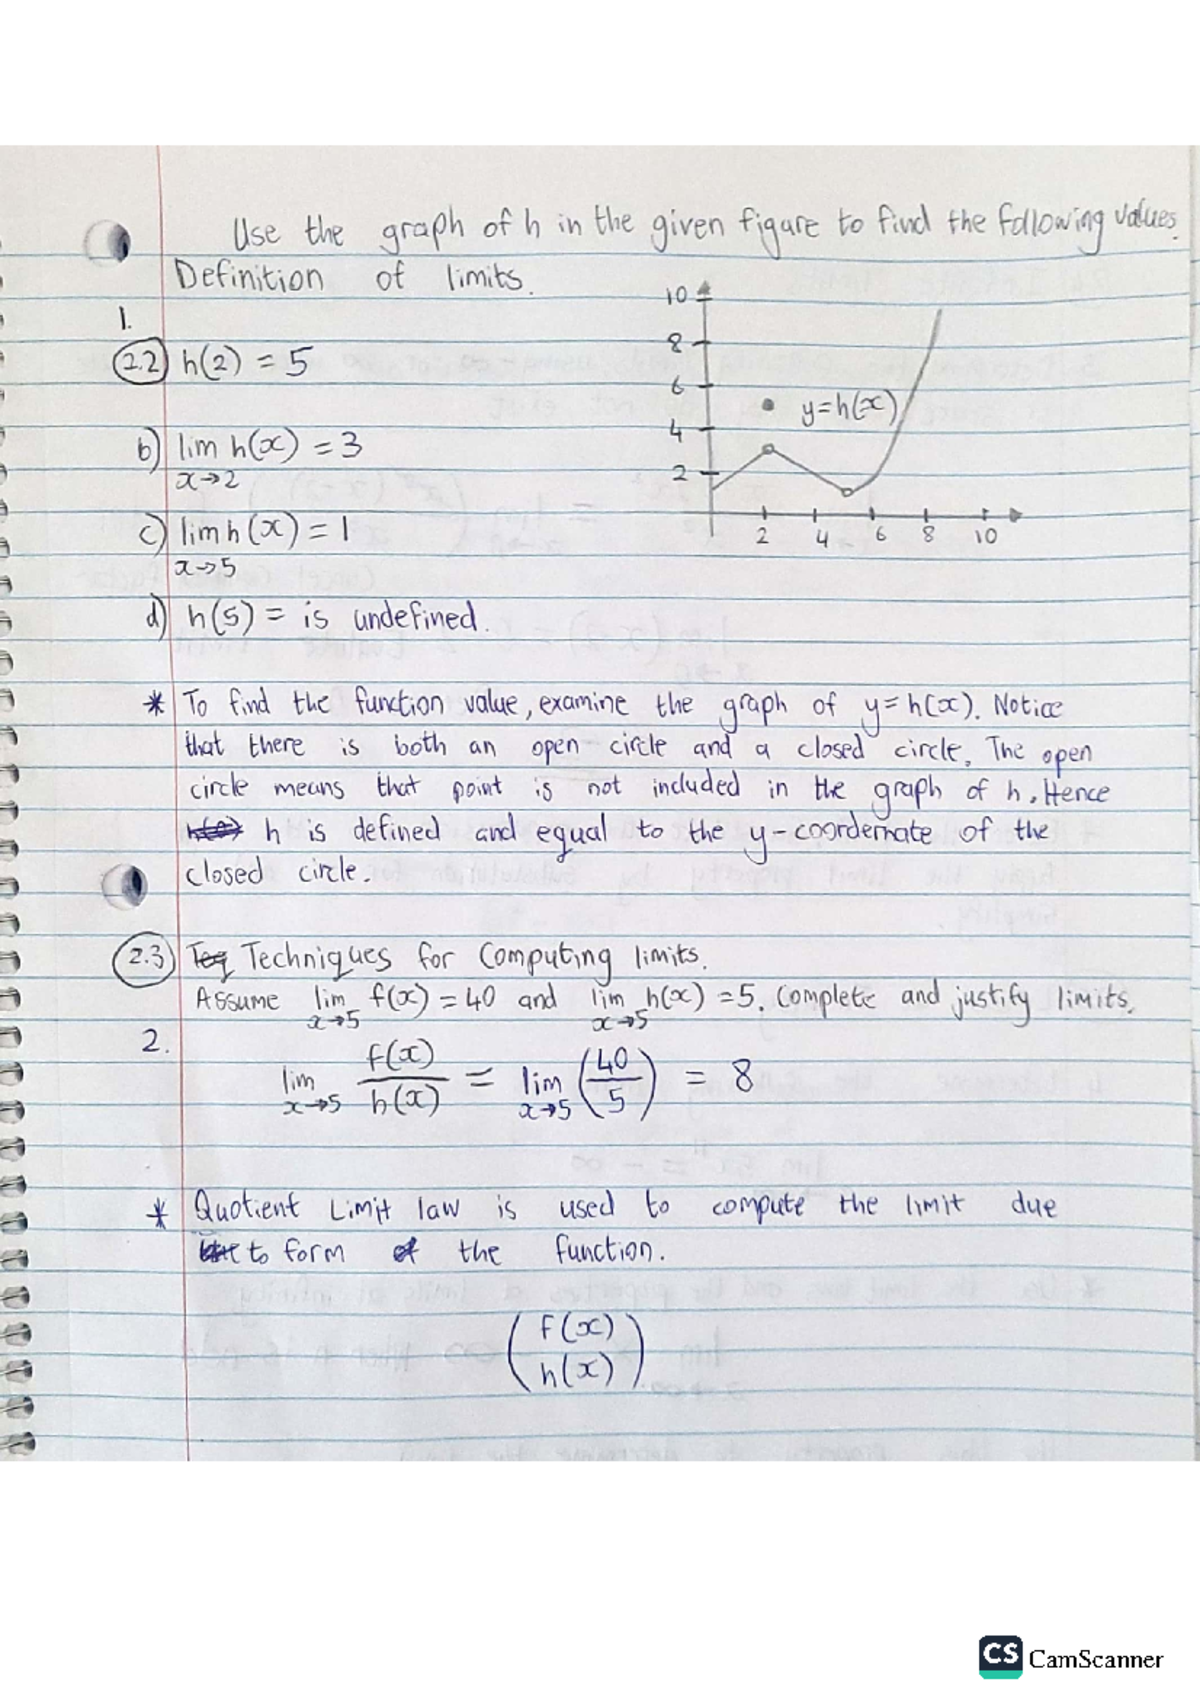 Use the graph of h in the given figure to find the following values.
Definition of limits.
1.
2.2 h(2) = 5
b) lim h(x) = 3
x→2
c) lim h(x) = 1
x→5
d) h(5) = is undefined.
10
8
6
4
2
y=h(x)
2 4 6 8 10
* To find the function value, examine the graph of y=h(x). Notice
that there is both an open circle and a closed circle. The open
circle means that point is not included in the graph of h. Hence
h is defined and equal to the y-coordernate of the
closed circle.
2.3 Teq Techniques for Computing limits.
Assume lim f(x) = 40 and lim h(x) = 5. Complete and justify limits.
x→5 x→5
2.
lim f(x)/h(x) = lim (40/5) = 8
x→5 x→5
* Quotient Limit law is used to compute the limit due
to form of the function.
(f(x)
h(x))
CS CamScanner